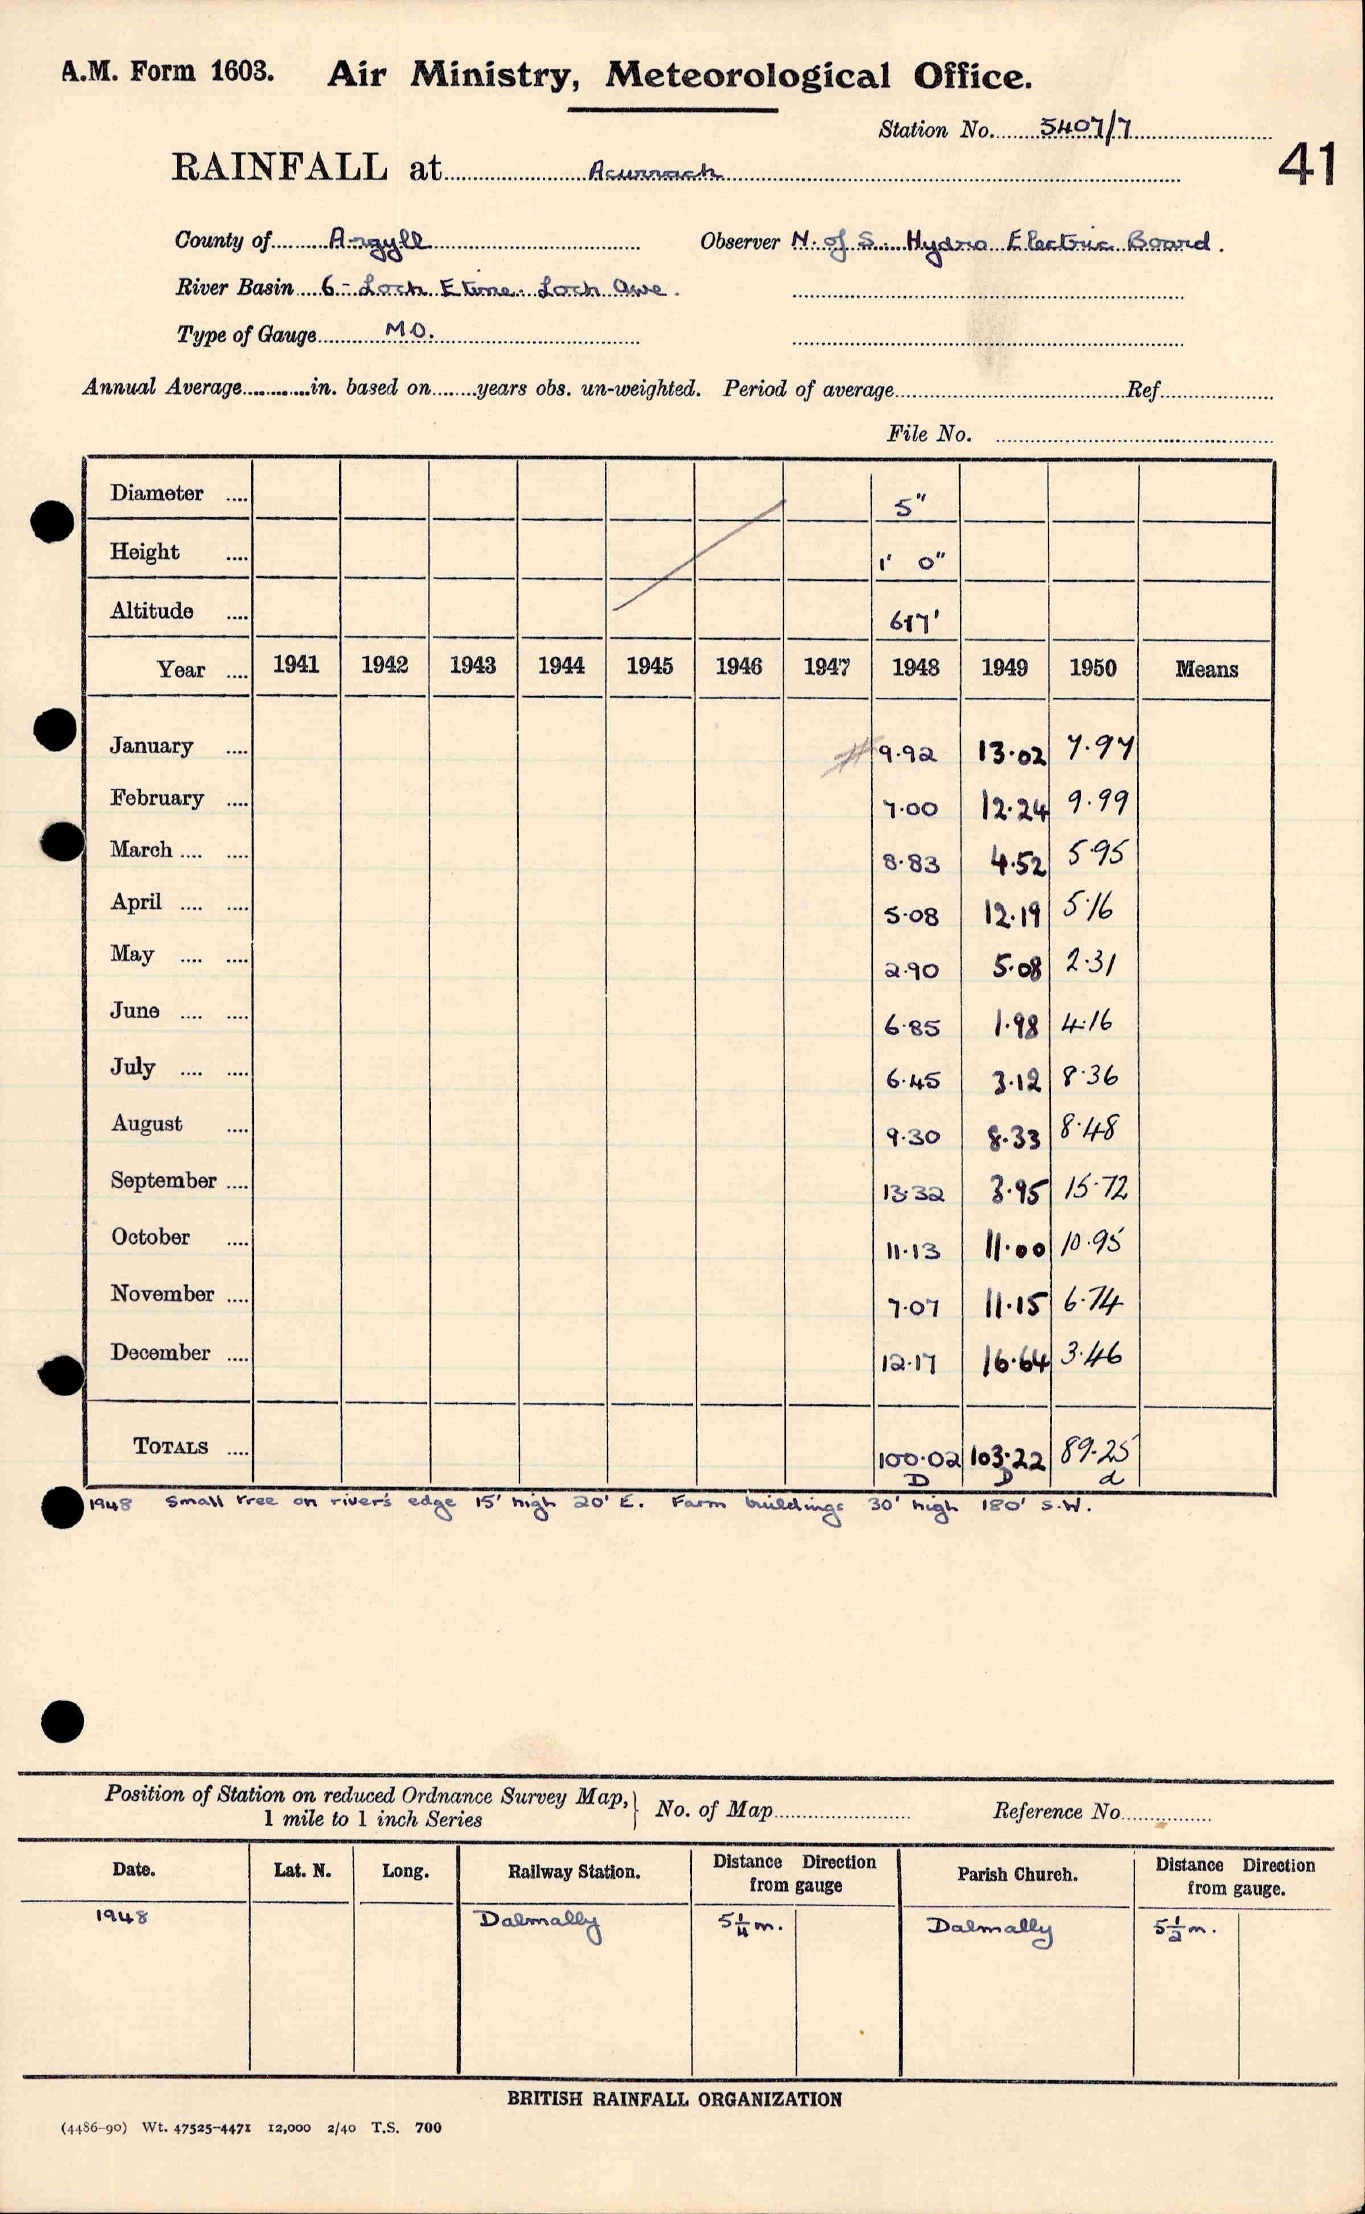 A.M. Form 1603. Air Ministry, Meteorological Office.
Station No. 5407/7
RAINFALL at Acurrach
41
County of Argyll Observer N. of S. Hydro Electric Board.
River Basin 6 - Loch Etive. Loch Awe.
Type of Gauge M.O.
Annual Average in. based on years obs. un-weighted. Period of average Ref.
File No.
Diameter 5"
Height 1' 0"
Altitude 617'
Year 1941 1942 1943 1944 1945 1946 1947 1948 1949 1950 Means
January 9.92 13.02 7.97
February 7.00 12.24 9.99
March 8.83 4.52 5.95
April 5.08 12.19 5.16
May 2.90 5.08 2.31
June 6.85 1.98 4.16
July 6.45 3.12 8.36
August 9.30 8.33 8.48
September 13.32 3.95 15.72
October 11.13 11.00 10.95
November 7.07 11.15 6.74
December 12.17 16.64 3.46
TOTALS 100.02 103.22 89.25
D D d
1948 Small tree on river's edge 15' high 20' E. Farm buildings 30' high 180' S.W.
Position of Station on reduced Ordnance Survey Map, 1 mile to 1 inch Series No. of Map Reference No.
Date. Lat. N. Long. Railway Station. Distance Direction from gauge Parish Church. Distance Direction from gauge.
1948 Dalmally 5¼ m. Dalmally 5½ m.
BRITISH RAINFALL ORGANIZATION
(4486-90) Wt. 47525-4471 12,000 2/40 T.S. 700